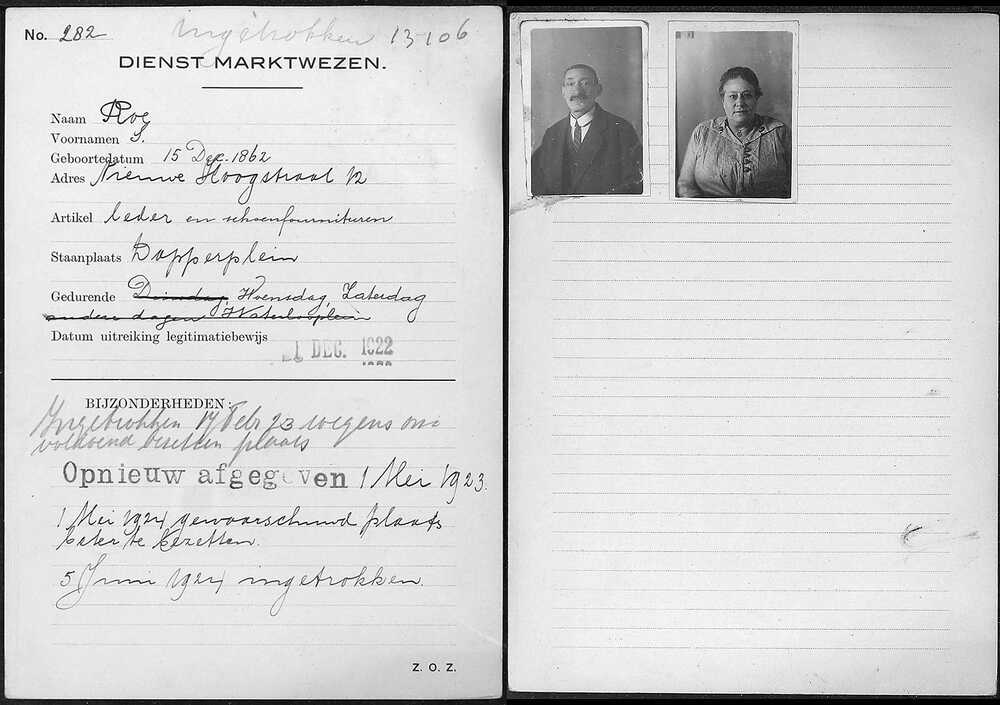 No. 282 Ingetrokken 13-106
DIENST MARKTWEZEN.
Naam Roe
Voornamen S.
Geboortedatum 15 Dec. 1862
Adres Nieuwe Hoogstraat 12
Artikel leder en schoenfournituren
Staanplaats Dapperplein
Gedurende Dinsdag, Woensdag, Zaterdag
andere dagen Waterlooplein
Datum uitreiking legitimatiebewijs
21 DEC. 1922
BIJZONDERHEDEN:
Ingetrokken 17 Febr 23 wegens on-
voldoend bezetten plaats
Opnieuw afgegeven 1 Mei 1923.
1 Mei 1924 gewaarschuwd plaats
beter te bezetten.
5 Juni 1924 ingetrokken.
Z. O. Z.